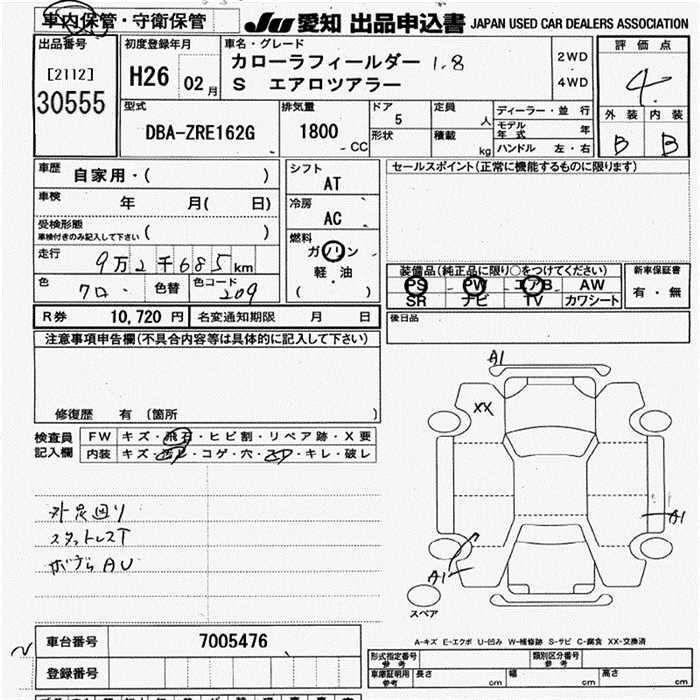 車内保管・守衛保管
JU 愛知 出品申込書 JAPAN USED CAR DEALERS ASSOCIATION
出品番号
[2112]
30555
初度登録年月
H26 02月
車名・グレード
カローラフィールダー 1.8
S エアロツアラー
2WD
4WD
評価点
4
外装 内装
B B
型式
DBA-ZRE162G
排気量
1800 CC
ドア
5
形状
定員
人
積載
kg
ディーラー・並行
モデル年式 年
ハンドル 左・右
車歴 自家用・( )
車検 年 月( 日)
受検形態
車検付きのみ記入して下さい ( )
走行 9万2千685km
色 クロ 色替 色コード 209
シフト
AT
冷房
AC
燃料
ガソリン
軽・油
( )
セールスポイント(正常に機能するものに限ります)
装備品(純正品に限り○をつけてください)
PS PW エアB AW
SR ナビ TV カワシート
新車保証書
有・無
後日品
R券 10,720 円 名変通知期限 月 日
注意事項申告欄(不具合内容等は具体的に記入して下さい)
修復歴 有 (箇所 )
検査員
記入欄
FW キズ・飛石・ヒビ割・リペア跡・X要
内装 キズ・汚れ・コゲ・穴・スレ・キレ・破レ
A1
XX
A1
A1
スペア
A-キズ E-エクボ U-凹み W-補修跡 S-サビ C-腐食 XX-交換済
車台番号 7005476
登録番号
形式指定番号
参考
類別区分番号
参考
車庫証明用
参考
長さ cm 幅 cm 高さ cm